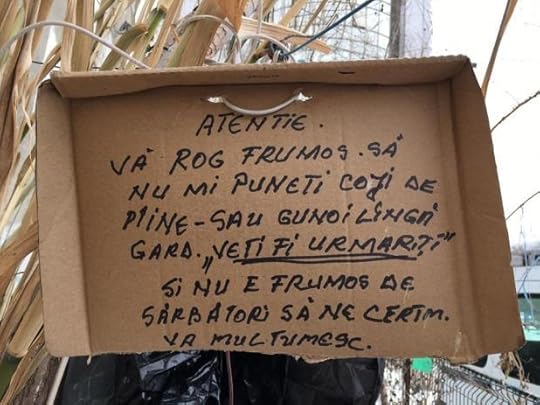 ATENTIE.
VĂ ROG FRUMOS. SĂ
NU MI PUNETI COJI DE
PIINE-SAU GUNOI LÎNGĂ
GARD. „VEȚI FI URMARIȚI"
SI NU E FRUMOS DE
SĂRBĂTORI SĂ NE CERTM.
VA MULTUMESC.